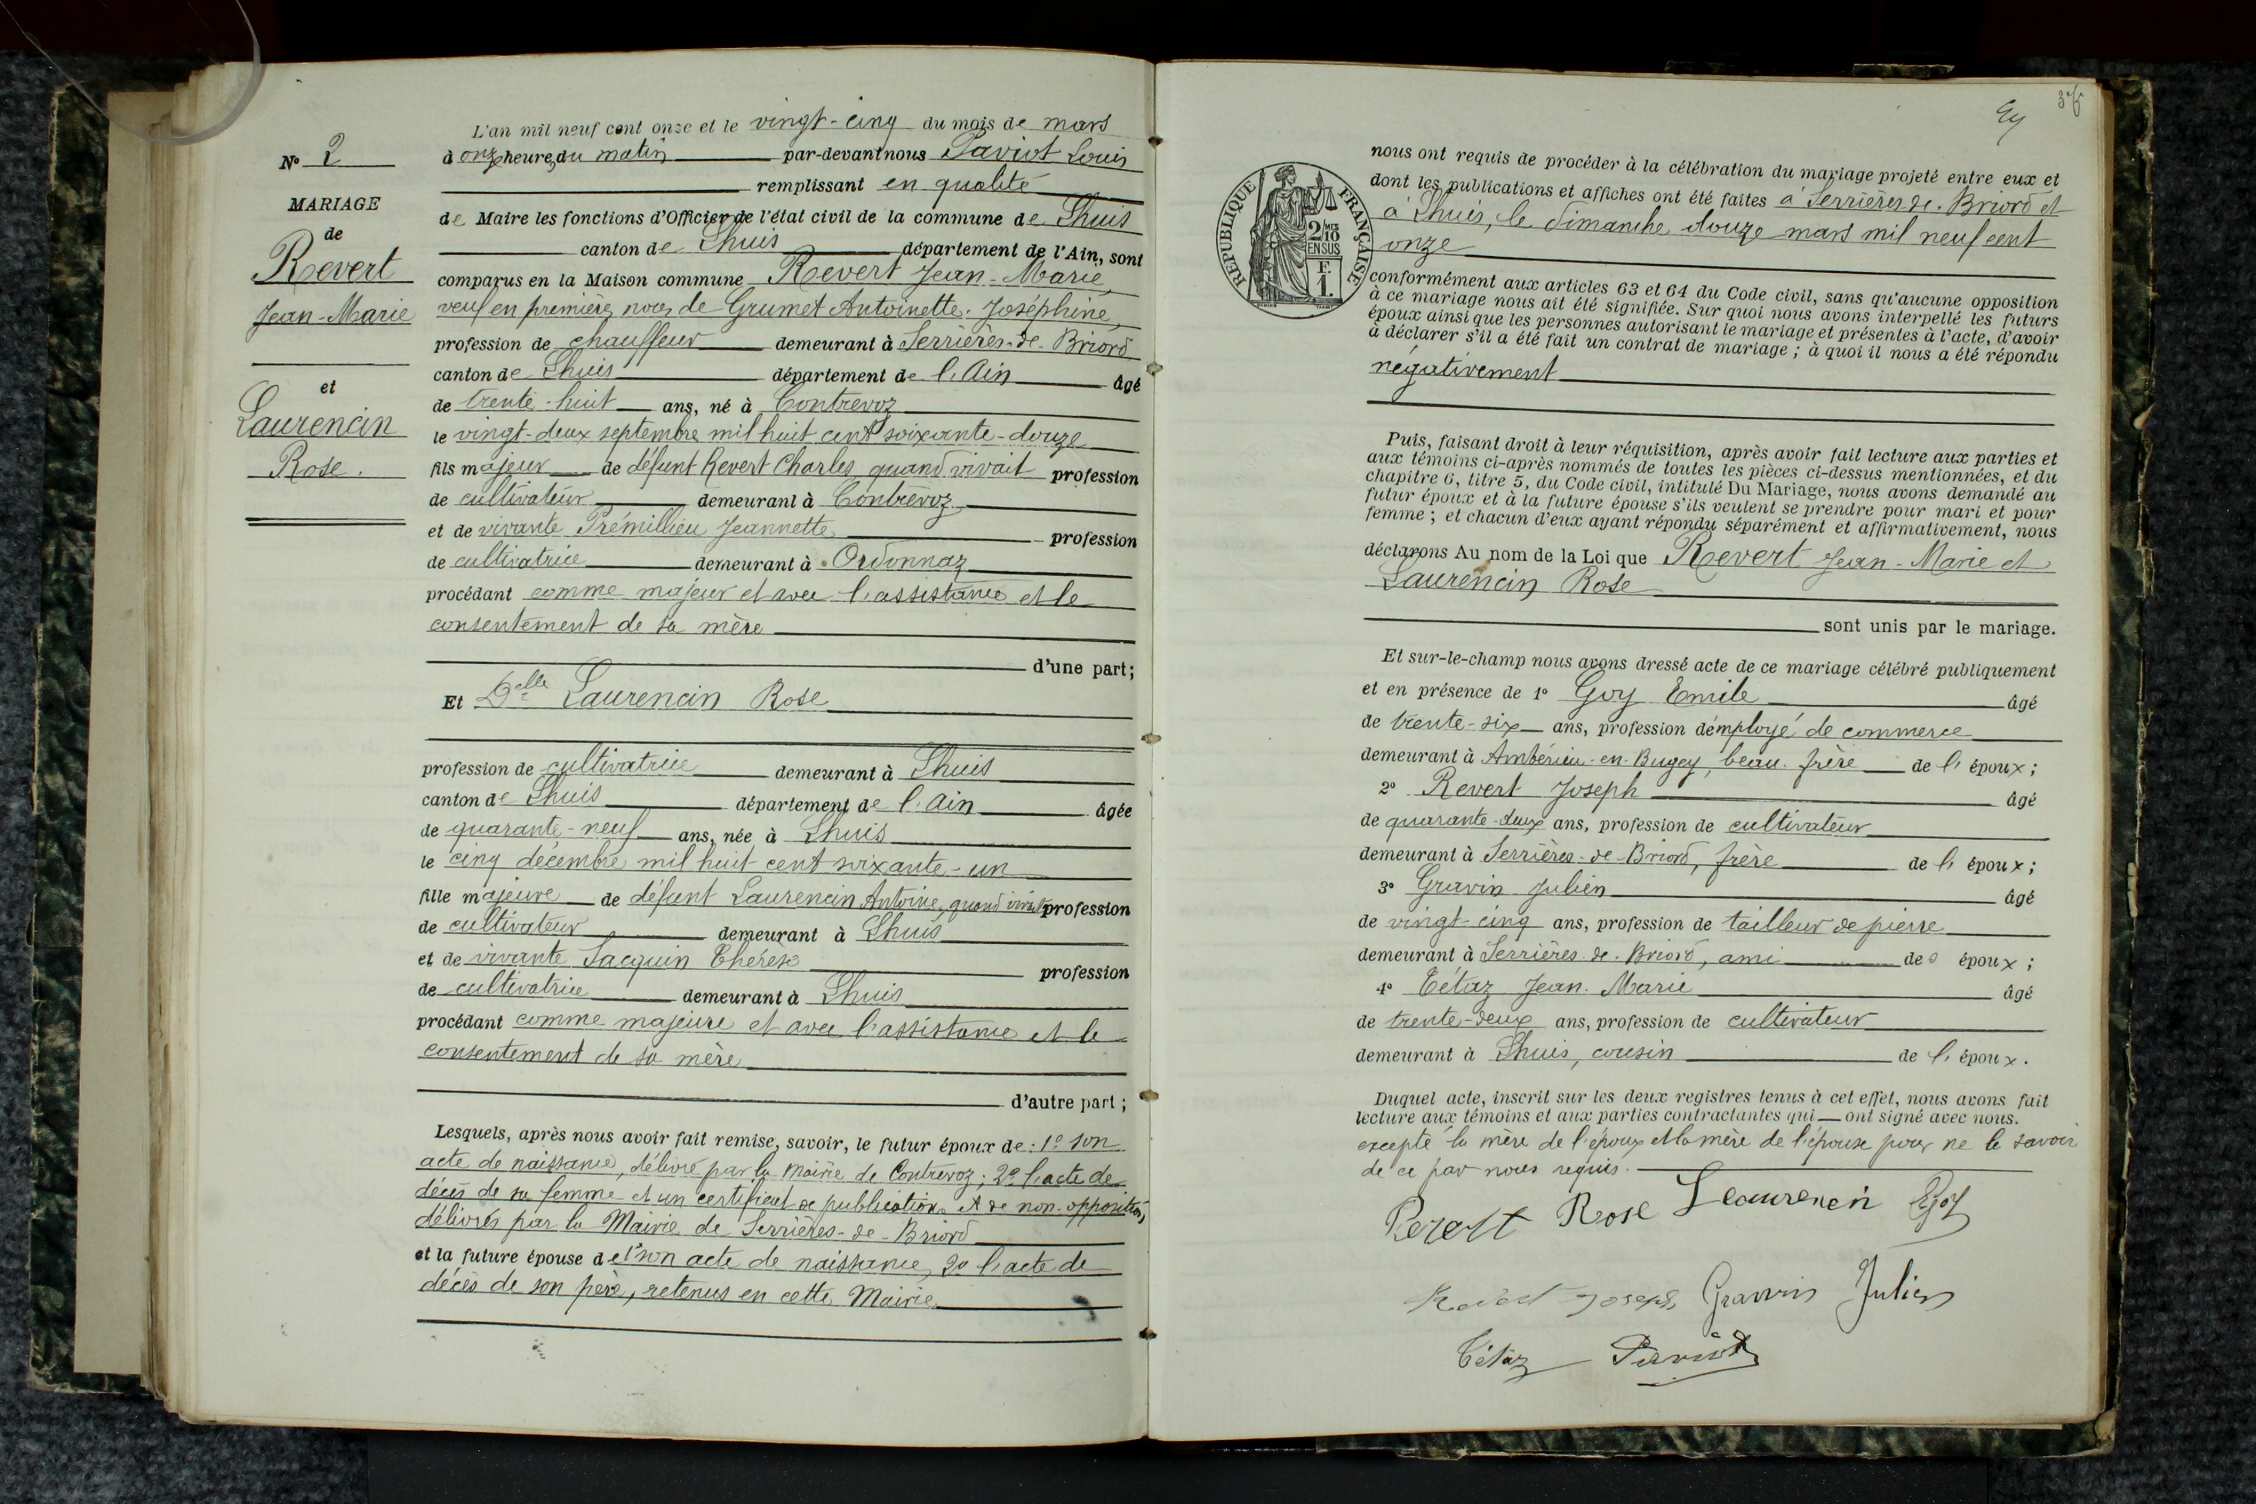 N° 2
MARIAGE
de
Revert
Jean-Marie
et
Laurencin
Rose.
L'an mil neuf cent onze et le vingt-cinq du mois de mars
à onze heures du matin par-devant nous Paviot Louis
remplissant en qualité
de Maire les fonctions d'Officier de l'état civil de la commune de Lhuis
canton de Lhuis département de l'Ain, sont
comparus en la Maison commune Revert Jean-Marie,
veuf en premières noces de Grumet Antoinette-Joséphine,
profession de chauffeur demeurant à Serrières-de-Briord
canton de Lhuis département de l'Ain âgé
de trente-huit ans, né à Contrevoz
le vingt-deux septembre mil huit cent soixante-douze
fils majeur de défunt Revert Charles quand vivait profession
de cultivateur demeurant à Contrevoz
et de vivante Prémillieu Jeannette profession
de cultivatrice demeurant à Ordonnaz
procédant comme majeur et avec l'assistance et le
consentement de sa mère
d'une part;
Et Delle Laurencin Rose
profession de cultivatrice demeurant à Lhuis
canton de Lhuis département de l'Ain âgée
de quarante-neuf ans, née à Lhuis
le cinq décembre mil huit cent soixante-un
fille majeure de défunt Laurencin Antoine, quand vivait profession
de cultivateur demeurant à Lhuis
et de vivante Jacquin Thérèse profession
de cultivatrice demeurant à Lhuis
procédant comme majeure et avec l'assistance et le
consentement de sa mère
d'autre part;
Lesquels, après nous avoir fait remise, savoir, le futur époux de: 1° son
acte de naissance, délivré par la Mairie de Contrevoz; 2° l'acte de
décès de sa femme et un certificat de publications et de non-opposition,
délivrés par la Mairie de Serrières-de-Briord
et la future épouse de 1° son acte de naissance, 2° l'acte de
décès de son père, retenus en cette Mairie
RÉPUBLIQUE FRANÇAISE
2/10 MES
EN SUS
F.
1.
nous ont requis de procéder à la célébration du mariage projeté entre eux et
dont les publications et affiches ont été faites à Serrières-de-Briord et
à Lhuis, le dimanche douze mars mil neuf cent
onze
conformément aux articles 63 et 64 du Code civil, sans qu'aucune opposition
à ce mariage nous ait été signifiée. Sur quoi nous avons interpellé les futurs
époux ainsi que les personnes autorisant le mariage et présentes à l'acte, d'avoir
à déclarer s'il a été fait un contrat de mariage; à quoi il nous a été répondu
négativement
Puis, faisant droit à leur réquisition, après avoir fait lecture aux parties et
aux témoins ci-après nommés de toutes les pièces ci-dessus mentionnées, et du
chapitre 6, titre 5, du Code civil, intitulé Du Mariage, nous avons demandé au
futur époux et à la future épouse s'ils veulent se prendre pour mari et pour
femme; et chacun d'eux ayant répondu séparément et affirmativement, nous
déclarons Au nom de la Loi que Revert Jean-Marie et
Laurencin Rose
sont unis par le mariage.
Et sur-le-champ nous avons dressé acte de ce mariage célébré publiquement
et en présence de 1° Goy Emile âgé
de trente-six ans, profession d'employé de commerce
demeurant à Ambérieu-en-Bugey, beau-frère de l'époux;
2° Revert Joseph âgé
de quarante-deux ans, profession de cultivateur
demeurant à Serrières-de-Briord, frère de l'époux;
3° Gravin Julien âgé
de vingt-cinq ans, profession de tailleur de pierre
demeurant à Serrières-de-Briord, ami des époux;
4° Tétaz Jean-Marie âgé
de trente-deux ans, profession de cultivateur
demeurant à Lhuis, cousin de l'époux.
Duquel acte, inscrit sur les deux registres tenus à cet effet, nous avons fait
lecture aux témoins et aux parties contractantes qui ont signé avec nous.
excepté la mère de l'époux et la mère de l'épouse pour ne le savoir
de ce par nous requis.
Revert Rose Leaurencin EGoy
Revert Joseph Gravin Julien
Tétaz Paviot